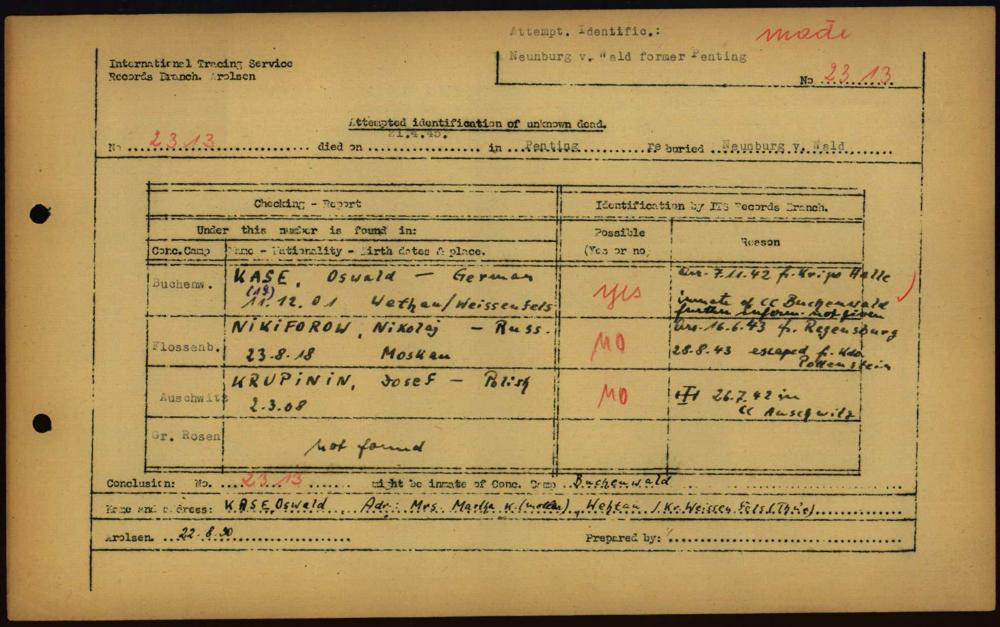 Attempt. Identific.: made
Neunburg v. Wald former Penting
International Tracing Service
Records Branch. Arolsen
No 2313
Attempted identification of unknown dead.
No 2313 died on 21.4.45. in Penting Reburied Neunburg v. Wald
Checking - Report
Identification by ITS Records Branch.
Under this number is found in:
Possible
(Yes or no)
Reason
Conc.Camp Name - Nationality - Birth dates & place.
Buchenw. KASE, Oswald - German
(19)
11.12.01 Wethau/Weissenfels
yes
arr. 7.11.42 fr. Kripo Halle
inmate of CC Buchenwald
further inform. not given
Flossenb. NIKIFOROW, Nikolaj - Russ.
23-8-18 Moskau
NO
arr. 16.6.43 fr. Regensburg
28.8.43 escaped fr. Kdo
Pottenstein
Auschwitz KRUPININ, Josef - Polish
2-3.08
NO
26.7.42 in
CC Auschwitz
Gr. Rosen not found
Conclusion: No. 2313 might be inmate of Conc. Camp Buchenwald
Name and address: KASE, Oswald Adr: Mrs. Martha K. (mother), Wehtau /Kr. Weissenfels (Thür)
Arolsen. 22.8.50 Prepared by: